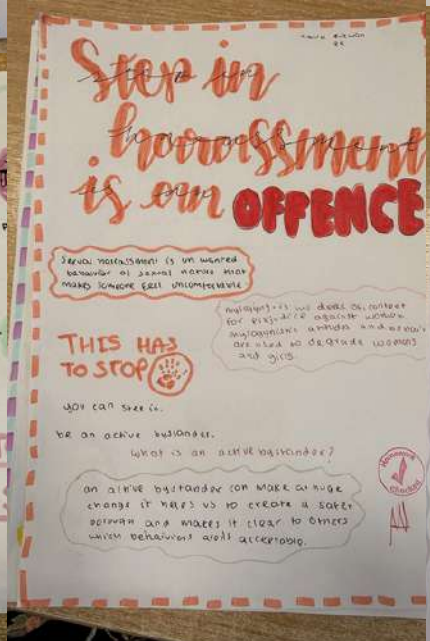 Step in
harrassment
is an OFFENCE
Sexual harrassment is un wanted
behavior of sexual nature that
makes someone feel uncomfortable
for prejudice against women
are used to degrade womens
and girls.
THIS HAS
TO STOP
you can step in.
be an active bystander.
what is an active bystander?
an active bystander can make a huge
change it helps us to create a safer
and makes it clear to others
which behaviors acceptable.
Homework
Checked